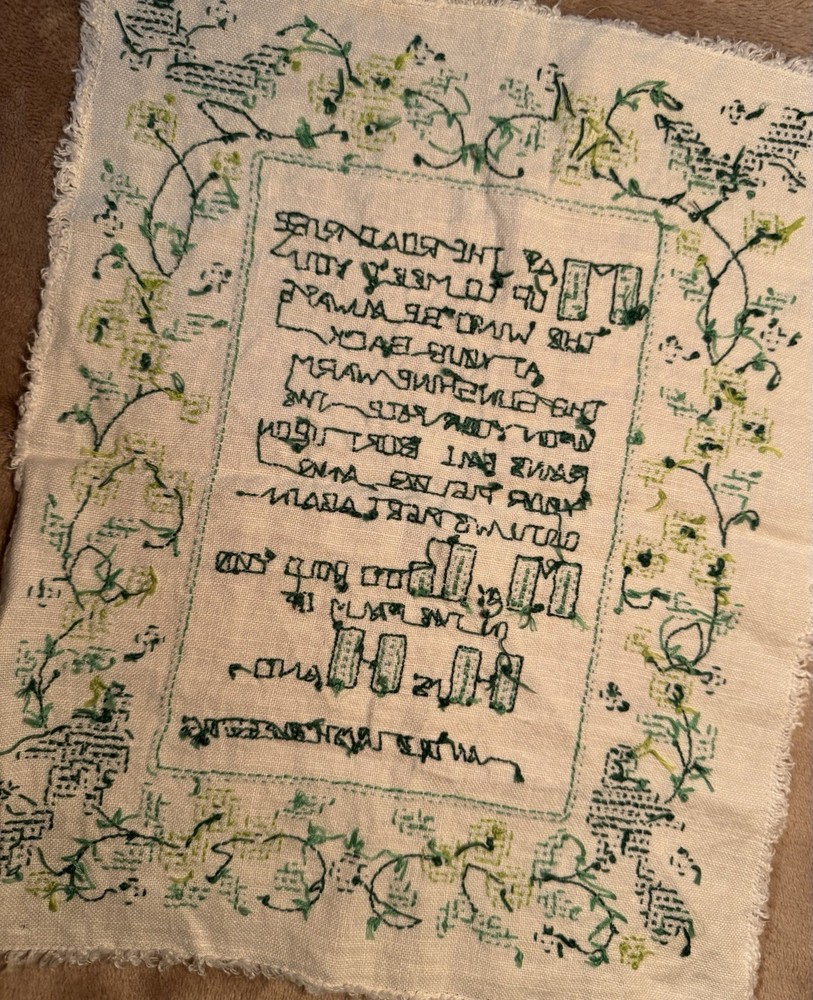 MAY THE ROAD RISE
UP TO MEET YOU
THE WIND BE ALWAYS
AT YOUR BACK
THE SUN SHINE WARM
UPON YOUR FACE THE
RAINS FALL SOFT UPON
YOUR FIELDS AND
UNTIL WE MEET AGAIN
MAY GOD HOLD YOU
IN THE PALM OF
HIS HAND